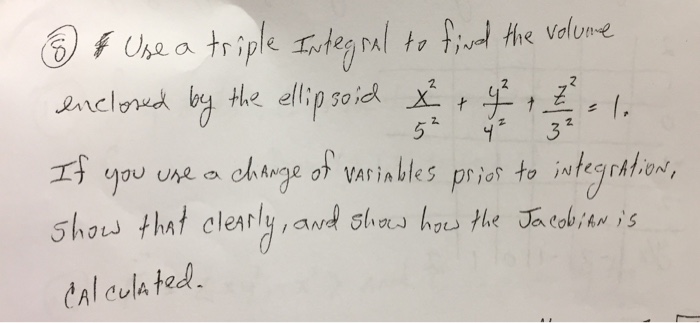 ⑧ Use a triple Integral to find the volume
enclosed by the ellipsoid x²/5² + y²/4² + z²/3² = 1.
If you use a change of variables prior to integration,
show that clearly, and show how the Jacobian is
calculated.